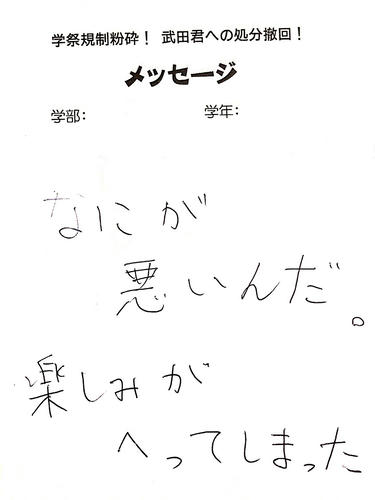 学祭規制粉砕！ 武田君への処分撤回！
メッセージ
学部： 学年：
なにが
悪いんだ。
楽しみが
へってしまった